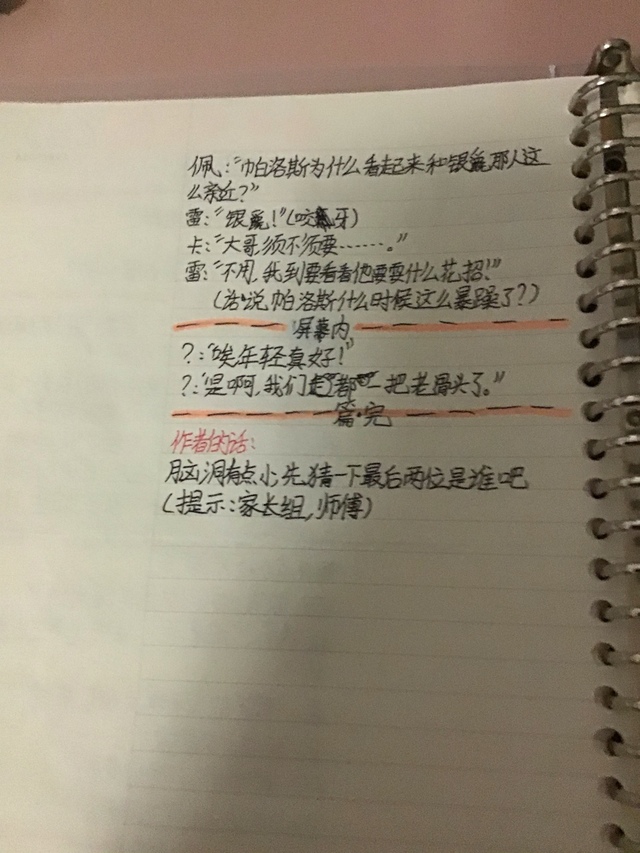 佩:“帕洛斯为什么看起来和银爵那人这
么亲近?”
雷:“银爵!”(咬牙)
卡:“大哥,须不须要……。”
雷:“不用,我到要看看他要耍什么花招!”
(话说帕洛斯什么时候这么暴躁了?)
屏幕内
?:“唉年轻真好!”
?:“是啊,我们都一把老骨头了。”
篇·完
作者的话:
脑洞有点小,先猜一下最后两位是谁吧
(提示:家长组,师傅)